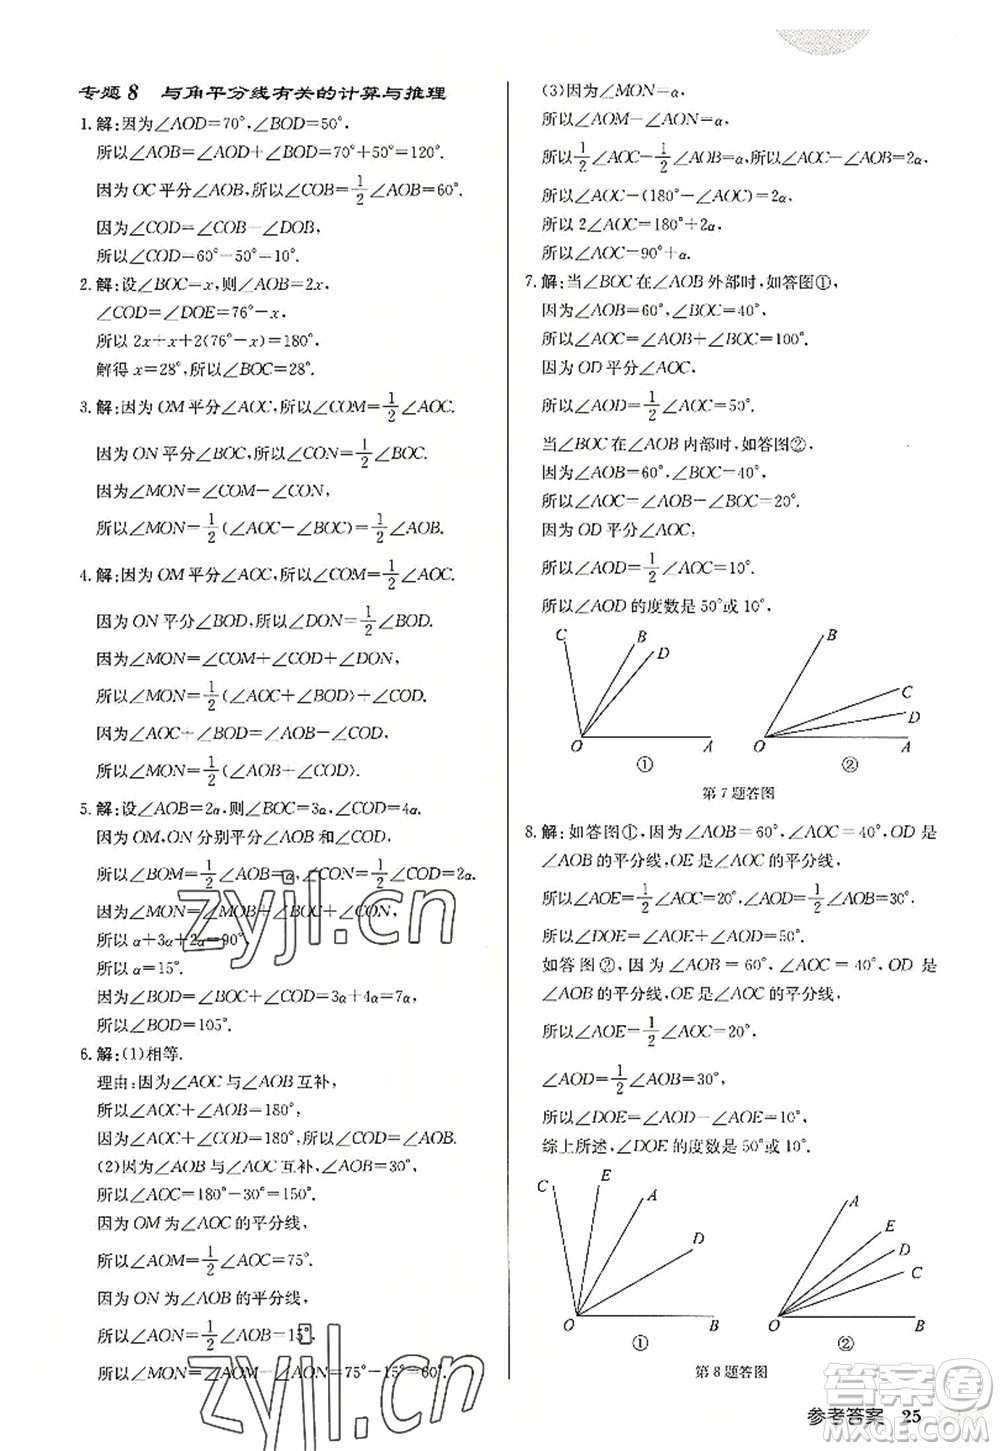 专题8 与角平分线有关的计算与推理
1.解:因为∠AOD=70°,∠BOD=50°.
所以∠AOB=∠AOD+∠BOD=70°+50°=120°.
因为 OC 平分∠AOB,所以∠COB=1/2∠AOB=60°.
因为∠COD=∠COB-∠DOB,
所以∠COD=60°-50°=10°.
2.解:设∠BOC=x,则∠AOB=2x,
∠COD=∠DOE=76°-x,
所以 2x+x+2(76°-x)=180°.
解得 x=28°,所以∠BOC=28°.
3.解:因为 OM 平分∠AOC,所以∠COM=1/2∠AOC.
因为 ON 平分∠BOC,所以∠CON=1/2∠BOC.
因为∠MON=∠COM-∠CON,
所以∠MON=1/2(∠AOC-∠BOC)=1/2∠AOB.
4.解:因为 OM 平分∠AOC,所以∠COM=1/2∠AOC.
因为 ON 平分∠BOD,所以∠DON=1/2∠BOD.
因为∠MON=∠COM+∠COD+∠DON,
所以∠MON=1/2(∠AOC+∠BOD)+∠COD.
因为∠AOC+∠BOD=∠AOB-∠COD,
所以∠MON=1/2(∠AOB+∠COD).
5.解:设∠AOB=2α,则∠BOC=3α,∠COD=4α.
因为 OM,ON 分别平分∠AOB 和∠COD,
所以∠BOM=1/2∠AOB=α,∠CON=1/2∠COD=2α.
因为∠MON=∠MOB+∠BOC+∠CON,
所以 α+3α+2α=90°.
所以 α=15°.
因为∠BOD=∠BOC+∠COD=3α+4α=7α,
所以∠BOD=105°.
6.解:(1)相等.
理由:因为∠AOC与∠AOB互补,
所以∠AOC+∠AOB=180°,
因为∠AOC+∠COD=180°,所以∠COD=∠AOB.
(2)因为∠AOB与∠AOC互补,∠AOB=30°,
所以∠AOC=180°-30°=150°.
因为 OM 为∠AOC的平分线,
所以∠AOM=1/2∠AOC=75°.
因为 ON 为∠AOB的平分线,
所以∠AON=1/2∠AOB=15°,
所以∠MON=∠AOM-∠AON=75°-15°=60°.
(3)因为∠MON=α,
所以∠AOM-∠AON=α,
所以1/2∠AOC-1/2∠AOB=α,所以∠AOC-∠AOB=2α,
所以∠AOC-(180°-∠AOC)=2α,
所以 2∠AOC=180°+2α,
所以∠AOC=90°+α.
7.解:当∠BOC在∠AOB外部时,如答图①,
因为∠AOB=60°,∠BOC=40°,
所以∠AOC=∠AOB+∠BOC=100°.
因为 OD 平分∠AOC,
所以∠AOD=1/2∠AOC=50°.
当∠BOC在∠AOB内部时,如答图②,
因为∠AOB=60°,∠BOC=40°,
所以∠AOC=∠AOB-∠BOC=20°.
因为 OD 平分∠AOC,
所以∠AOD=1/2∠AOC=10°.
所以∠AOD的度数是50°或10°,
C B D O A ①
B C D O A ②
第7题答图
8.解:如答图①,因为∠AOB=60°,∠AOC=40°,OD 是
∠AOB的平分线,OE是∠AOC的平分线,
所以∠AOE=1/2∠AOC=20°,∠AOD=1/2∠AOB=30°,
所以∠DOE=∠AOE+∠AOD=50°.
如答图②,因为∠AOB=60°,∠AOC=40°,OD 是
∠AOB的平分线,OE是∠AOC的平分线,
所以∠AOE=1/2∠AOC=20°,
∠AOD=1/2∠AOB=30°,
所以∠DOE=∠AOD-∠AOE=10°.
综上所述,∠DOE的度数是50°或10°.
C E A D O B ①
A E D C O B ②
第8题答图
参考答案 25
zyjl.cn
zyjl.cn
答案圈